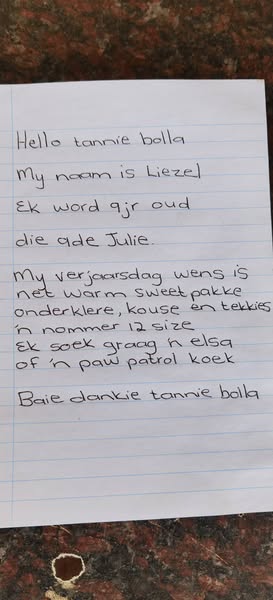 Hello tannie bolla
My naam is Liezel
Ek word 9jr oud
die 9de Julie.
My verjaarsdag wens is
net warm sweet pakke
onderklere, kouse en tekkies
'n nommer 12 size
Ek soek graag 'n elsa
of 'n paw patrol koek
Baie dankie tannie bolla